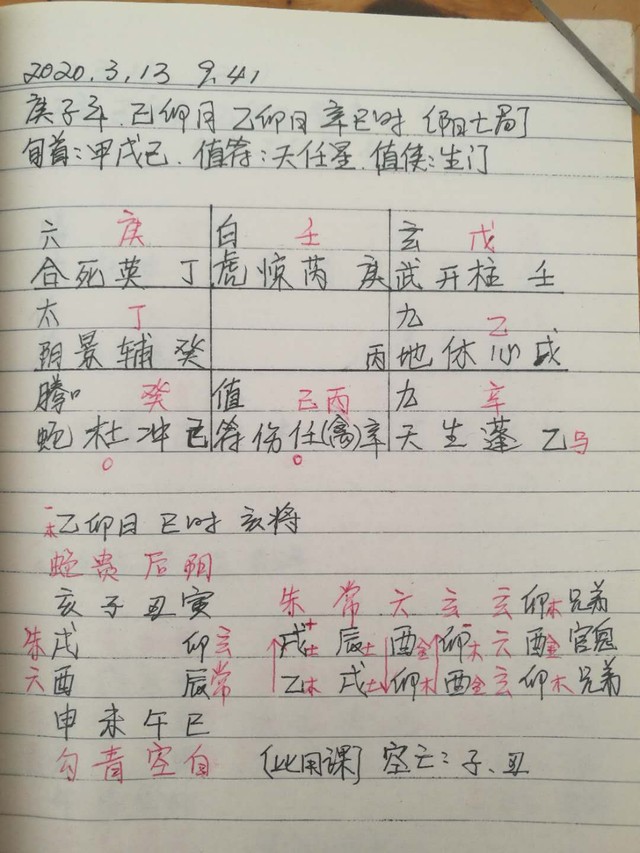 2020.3.13 9.41
庚子年 己卯月 乙卯日 辛巳时 (阳七局]
旬首:甲戌己. 值符:天任星. 值使:生门
六 庚 白 壬 玄 戊
合死英 丁 虎惊芮 庚 武开柱 壬
太 丁 九 乙
阴景辅癸 丙 地休心戊
螣 癸 值 己丙 九 辛
蛇杜冲己 符伤任(禽)辛 天生蓬乙马
○ ○
一木乙卯日 巳时 亥将
蛇贵后阴
亥子丑寅 朱 常 六 玄 玄卯木兄弟
朱戌 卯玄 戌土 辰土 酉金 卯木 六酉金官鬼
六酉 辰常 乙木 戌土 卯木 酉金 玄卯木兄弟
申未午巳
勾青空白 [比用课] 空亡:子、丑